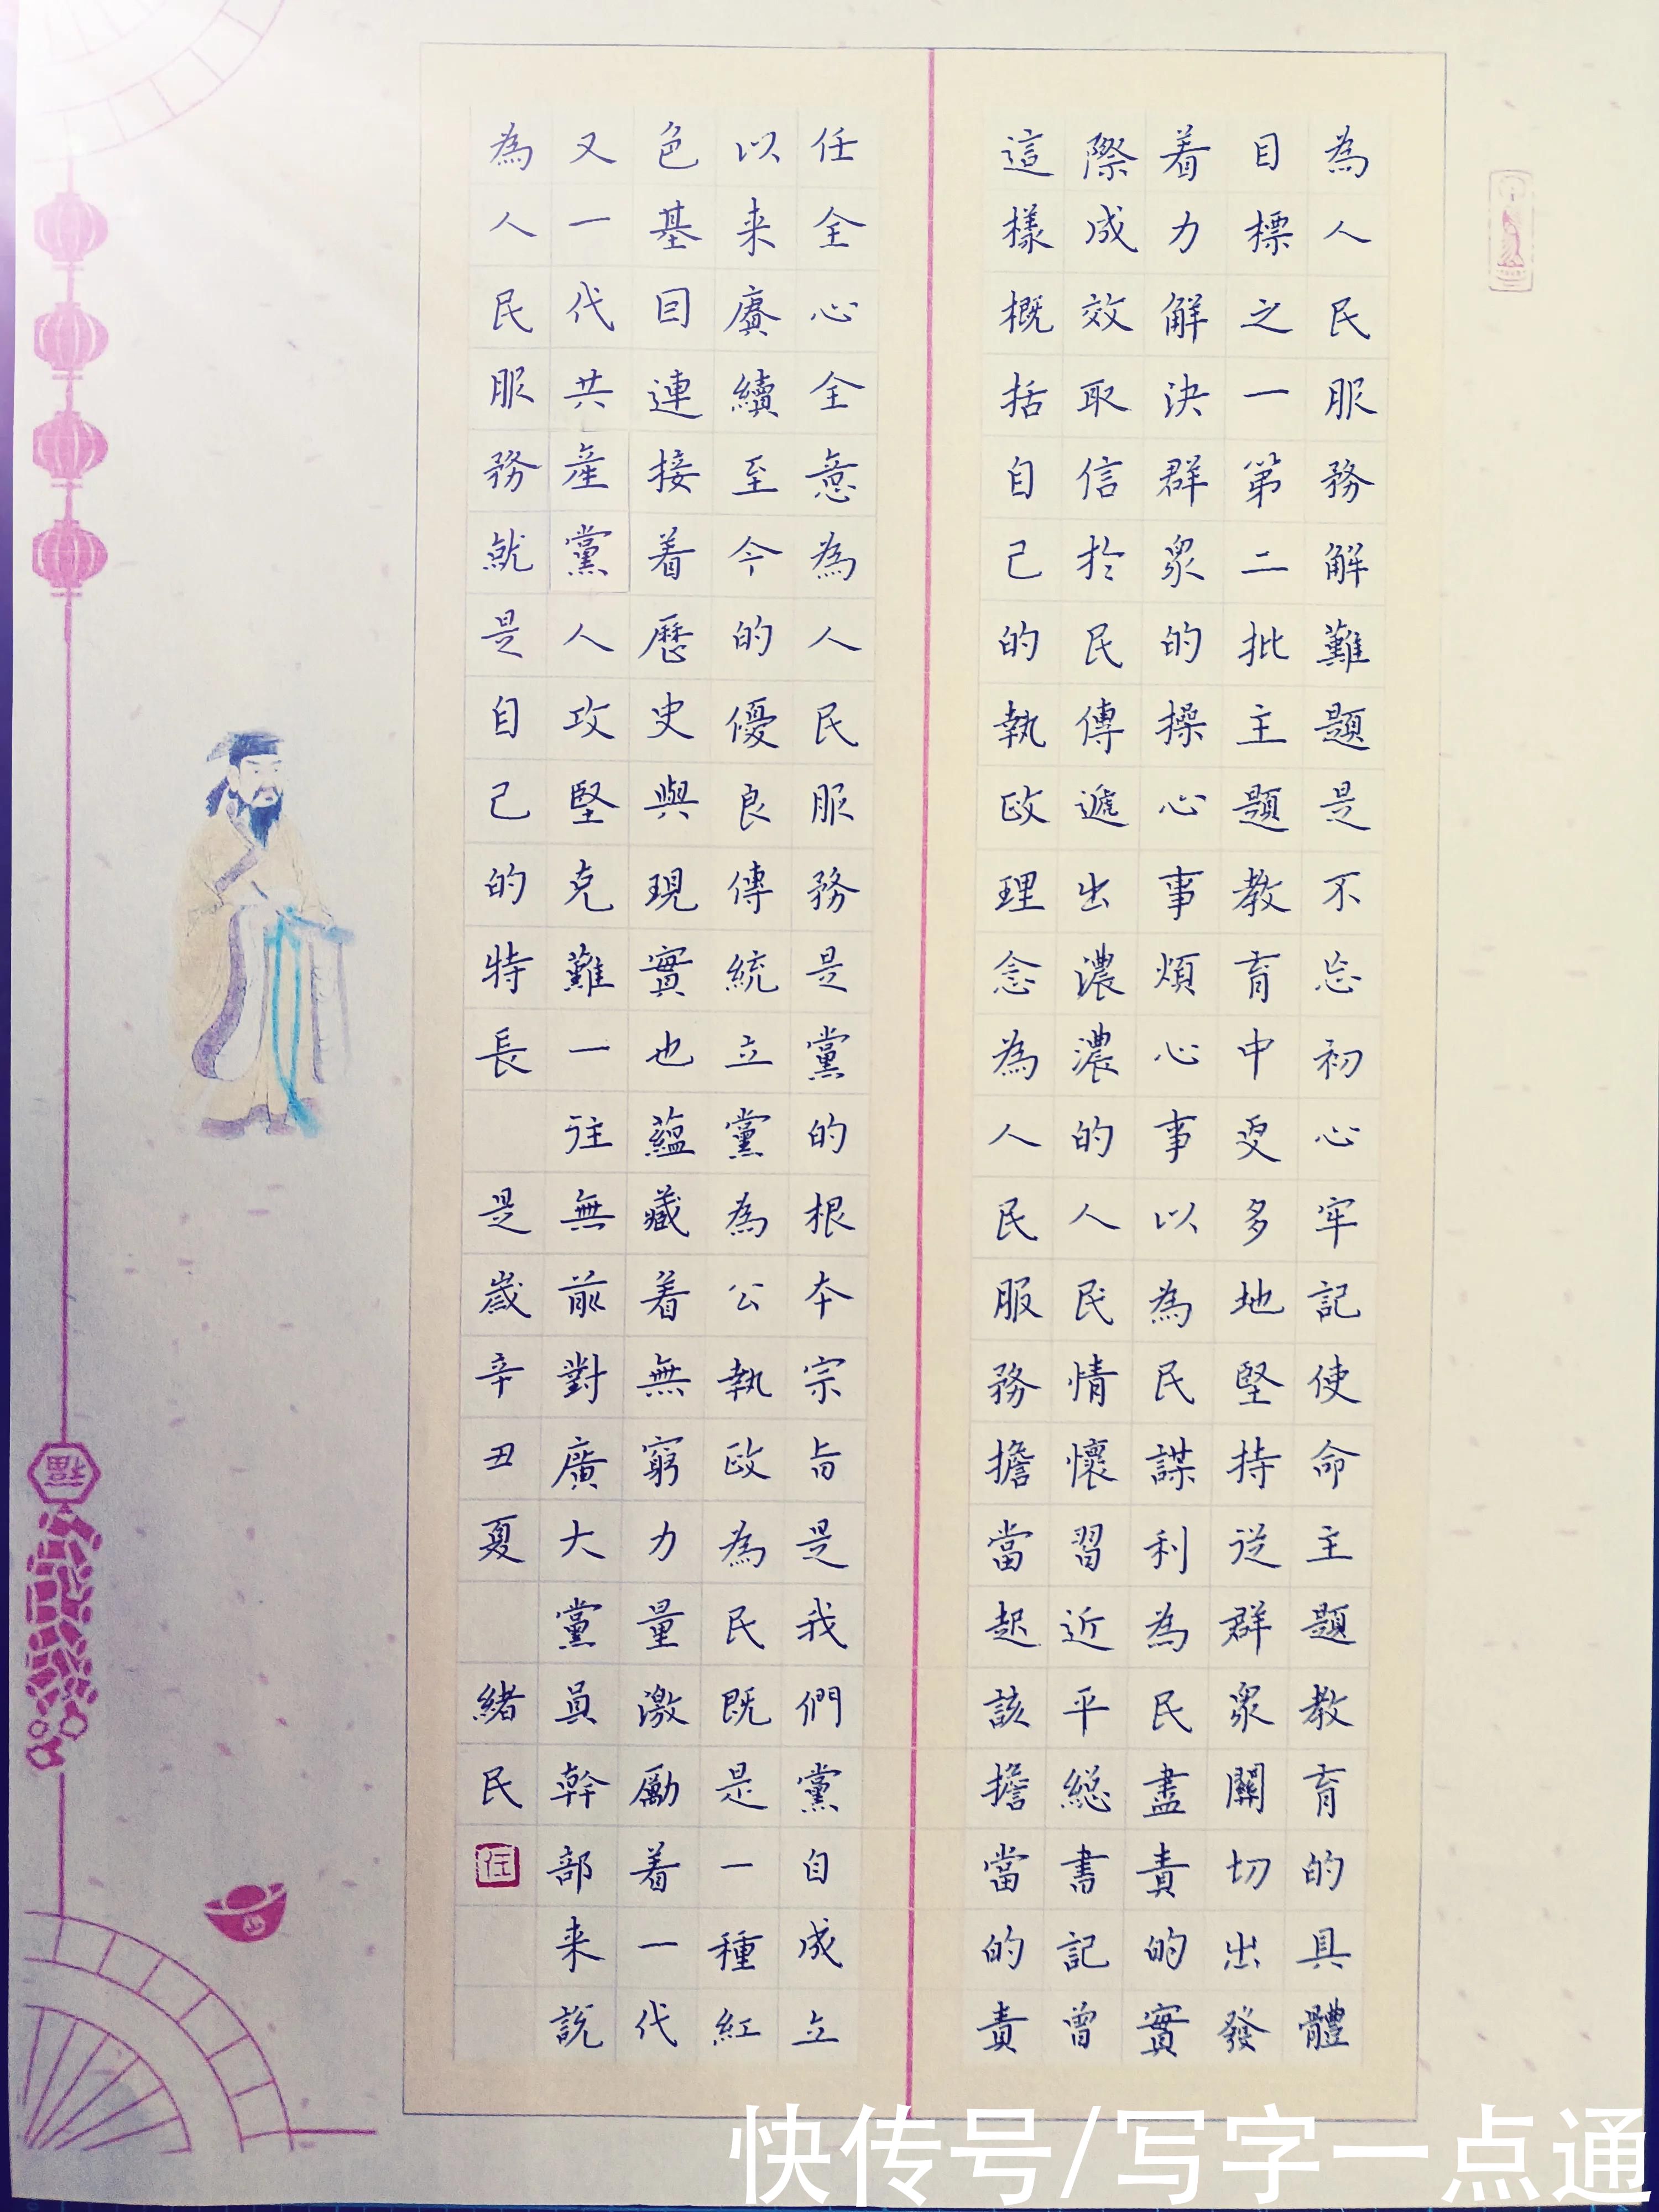 為人民服務解難題是不忘初心牢記使命主題教育的具體
目標之一第二批主題教育中更多地堅持從群眾關切出發
着力解決群眾的操心事煩心事以為民謀利為民盡責的實
際成效取信於民傳遞出濃濃的人民情懷習近平總書記曾
這樣概括自己的執政理念為人民服務擔當起該擔當的責
任全心全意為人民服務是黨的根本宗旨是我們黨自成立
以来賡續至今的優良傳統立黨為公執政為民既是一種紅
色基因連接着歷史與現實也蘊藏着無窮力量激勵着一代
又一代共產黨人攻堅克難一往無前對廣大黨員幹部来說
為人民服務就是自己的特長 是歲辛丑夏 緒民
任
福
快传号/写字一点通